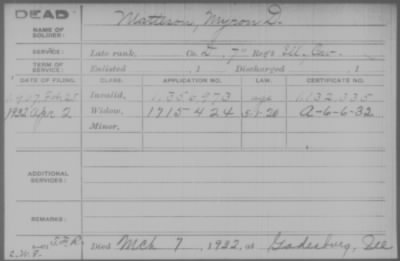 DEAD
NAME OF SOLDIER: Matteson, Myron D.
SERVICE: Late rank, Co. L, 7" Reg't Ill. Cav.
TERM OF SERVICE: Enlisted , 1 Discharged , 1
DATE OF FILING. CLASS. APPLICATION NO. LAW. CERTIFICATE NO.
1907 Feb 25 Invalid, 1,356,973 age 1,132,335
1932 Apr 2 Widow, 1715424 5-1-20 A-6-6-32
Minor,
ADDITIONAL SERVICES:
REMARKS:
Died Mch 7, 1932, at Galesburg, Ill